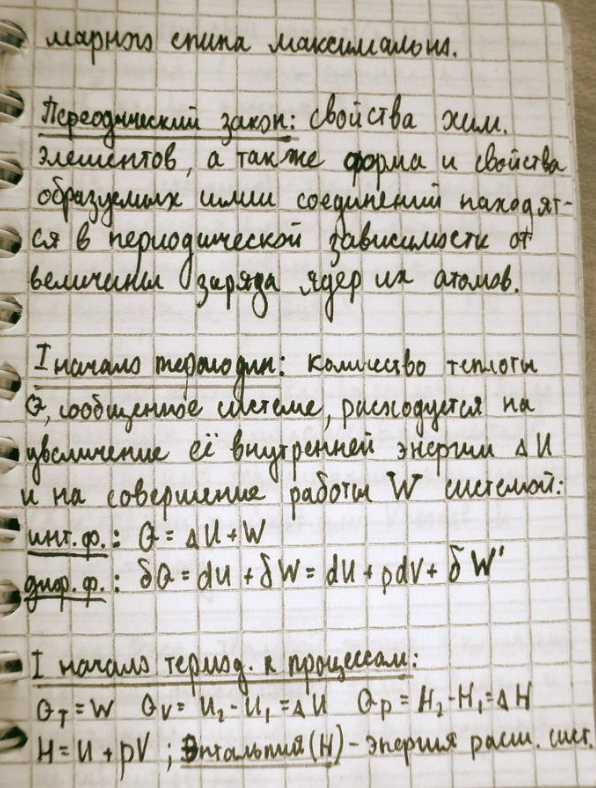 марного спина максимально.
Переодический закон: свойства хим.
элементов, а также форма и свойства
образуемых ими соединений находят-
ся в периодической зависимости от
величины заряда ядер их атомов.
I начало термодин: количество теплоты
Q, сообщенное системе, расходуется на
увеличение её внутренней энергии ΔU
и на совершение работы W системой:
инт. ф.: Q = ΔU + W
диф. ф.: δQ = dU + δW = dU + pdV + δW'
I начало термод. к процессам:
Q_T = W Q_V = U₂ - U₁ = ΔU Q_p = H₂ - H₁ = ΔH
H = U + pV ; Энтальпия (H) - энергия расш. сист.